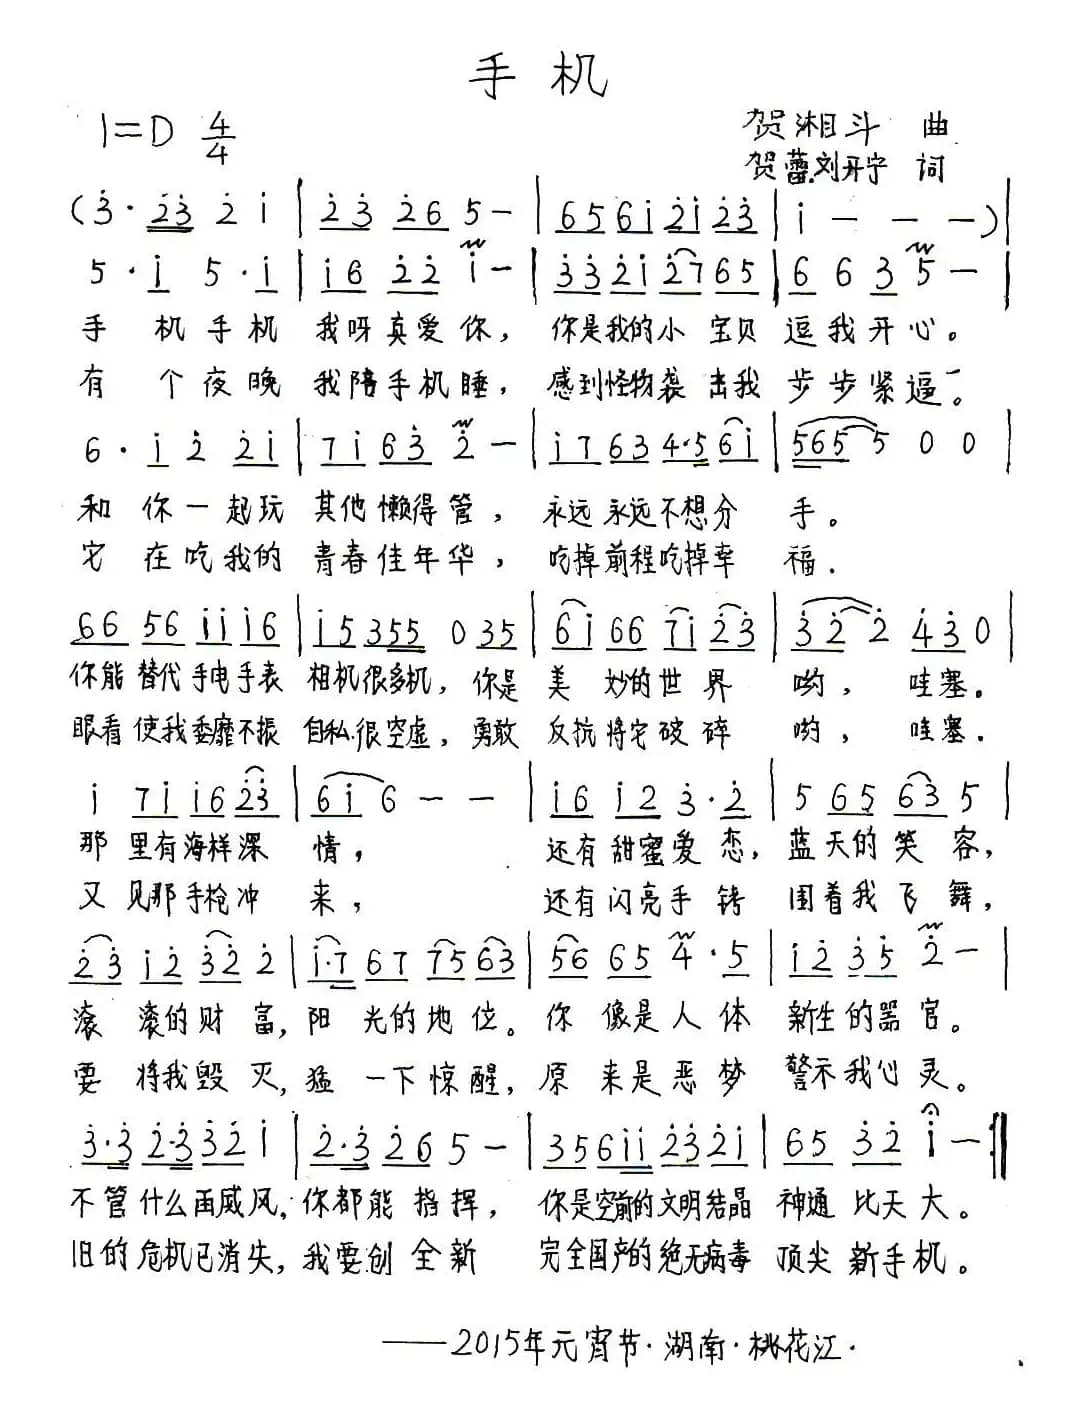 手机
1=D 4/4
贺湘斗 曲
贺蕾.刘开宁 词
(3̇· 2̇3̇ 2̇ i | 2̇3̇ 2̇6 5 — | 656i 2̇i2̇3̇ | i — — — ) |
5· i 5· i | i6 2̇2̇ i — | 3̇3̇2̇i 2̇765 | 6 6 3 5 — |
手 机 手 机 我呀真爱你, 你是我的小 宝贝 逗我开心。
有 个 夜 晚 我陪手机睡, 感到怪物袭 击我 步步紧逼。
6· i 2̇ 2̇i | 7i 63̇ 2̇ — | i763 4·56i | 565 5 0 0 |
和 你一起玩 其他懒得管, 永远永远不想分 手。
它 在吃我的 青春佳年华, 吃掉前程吃掉幸 福.
66 56 ii i6 | i5355 0 35 | 6i 66 7i 2̇3̇ | 3̇2̇ 2̇ 4̇3̇0 |
你能替代手电手表 相机很多机, 你是 美 妙的世界 哟, 哇塞。
眼看使我委靡不振 自私.很空虚, 勇敢 反抗将它破碎 哟, 哇塞.
i 7i i6 2̇3̇ | 6i 6 — — | i6 i2̇ 3̇·2̇ | 5 65 63 5 |
那 里有海样深 情, 还有甜蜜爱恋, 蓝天的笑容,
又 见那手枪冲 来, 还有闪亮手铐 围着我飞舞,
2̇3̇ i2̇ 3̇2̇ 2̇ | i·7 67 75 63 | 56 65 4·5 | i2̇ 3̇5̇ 2̇ — |
滚 滚的财富, 阳 光的地位。你 像是人体 新生的器官。
要 将我毁灭, 猛 一下惊醒, 原 来是恶梦 警示我心灵。
3̇·3̇ 2̇·3̇ 3̇2̇ i | 2̇·3̇ 2̇6 5 — | 356ii 2̇3̇2̇i | 65 3̇2̇ i — :||
不管什么画威风, 你都能指挥, 你是空前的文明结晶 神通比天大。
旧的危机已消失, 我要创全新 完全国产的绝无病毒 顶尖新手机。
——2015年元宵节·湖南·桃花江.